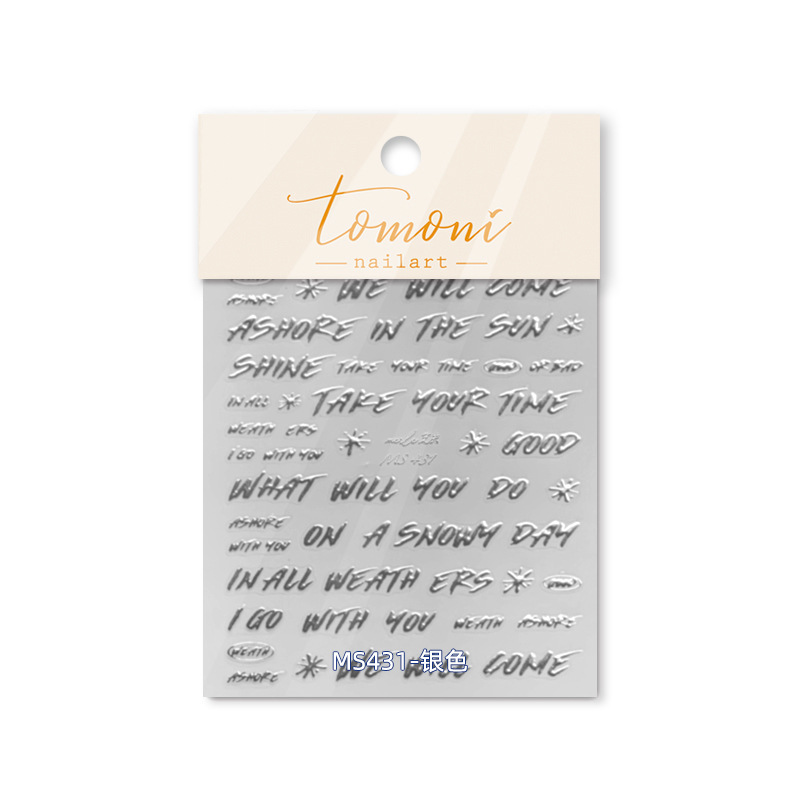 tomoni
nailart
ASHORE WE WILL COME
ASHORE IN THE SUN
SHINE TAKE YOUR TIME OR BAD
IN ALL TAKE YOUR TIME
WEATH ERS
I GO WITH YOU MS-431 GOOD
WHAT WILL YOU DO
ASHORE
WITH YOU ON A SNOWY DAY
IN ALL WEATH ERS
I GO WITH YOU WEATH ASHORE
WEATH
ASHORE WE WILL COME
MS431-银色